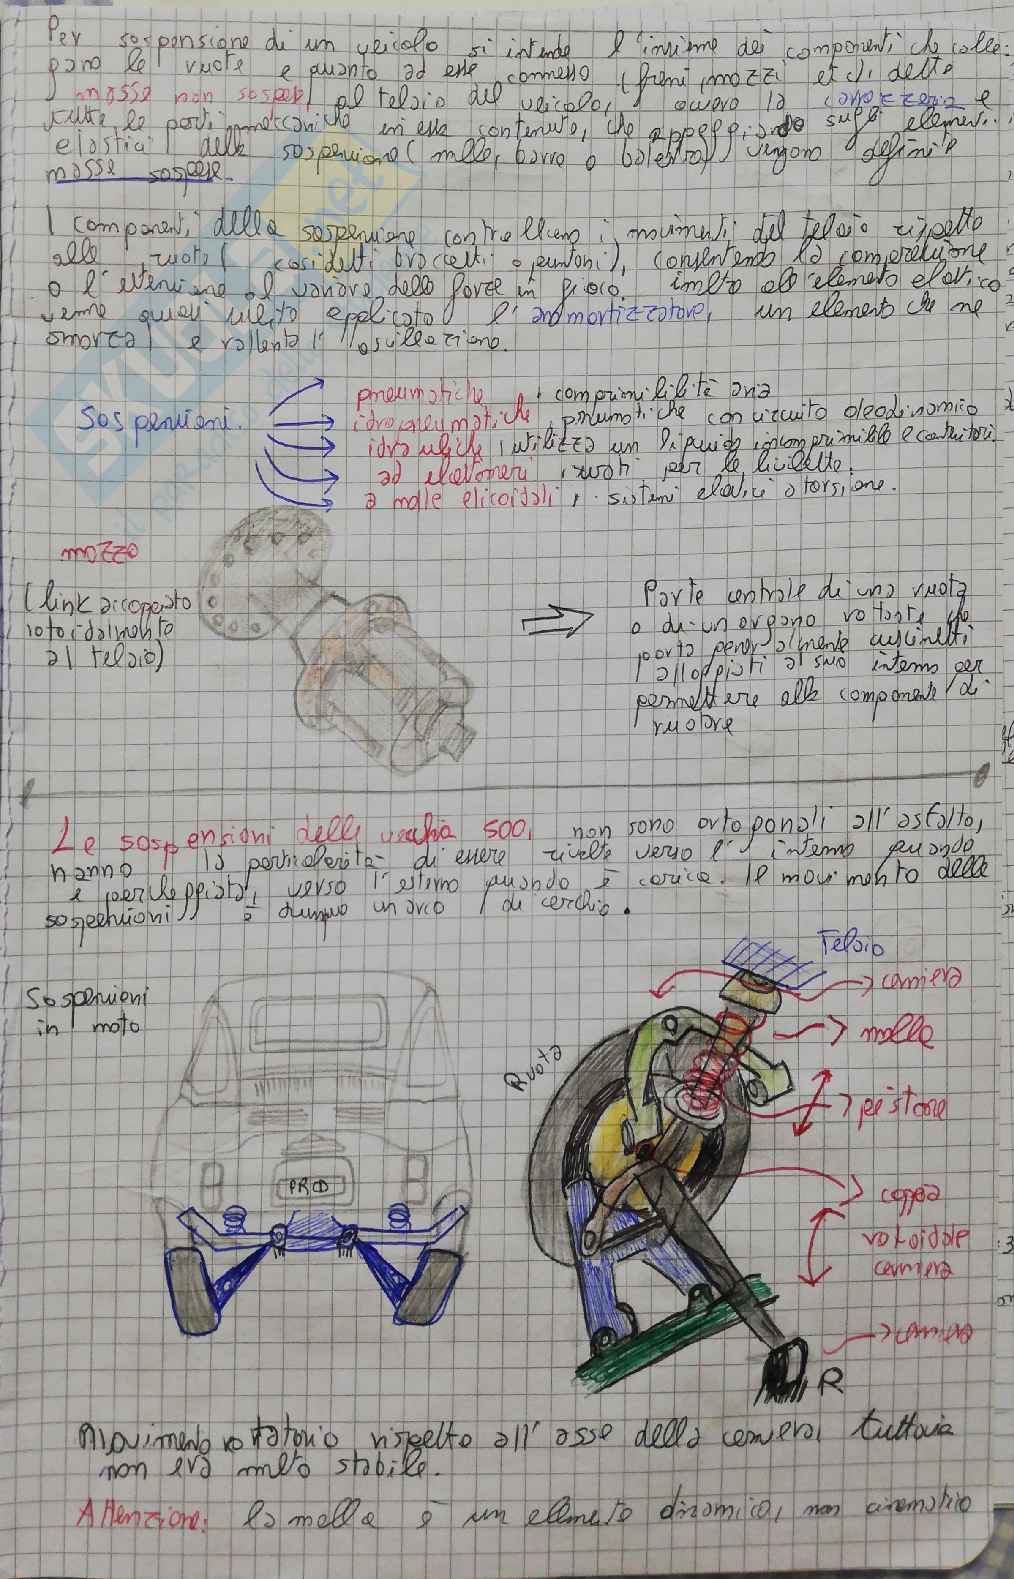 Per sospensione di un veicolo si intende l'insieme dei componenti che colle-
gano le ruote e quanto ad esse connesso (freni, mozzi etc), detto
masse non sospese, al telaio del veicolo, ovvero la carrozzeria e
tutte le parti meccaniche in essa contenute, che appoggiando sugli elementi
elastici della sospensione (molle, barre o balestra) vengono definite
masse sospese.
I componenti della sospensione controllano i movimenti del telaio rispetto
alle ruote (cosidetti braccetti o puntoni), consentendo la compressione
o l'estensione al variare delle forze in gioco. inoltre all'elemento elastico
viene quasi subito applicato l'ammortizzatore, un elemento che ne
smorza e rallenta l'oscillazione.
Sospensioni.
pneumatiche, comprimibilità aria
idropneumatiche, pneumatiche con circuito oleodinamico
idrauliche, utilizza un liquido incomprimibile e
ad elastomeri, usati per le
a molle elicoidali, sistemi elastici a torsione.
mozzo
(link accoppiato
rotoidalmente
al telaio)
Parte centrale di una ruota
o di un organo rotante che
porta generalmente cuscinetti
alloggiati al suo interno per
permettere alla componente di
ruotare
Le sospensioni della vecchia 500, non sono ortogonali all'asfalto,
hanno la particolarità di essere rivolte verso l'interno quando
è parcheggiata, verso l'esterno quando è carica. Il movimento delle
sospensioni è dunque un arco di cerchio.
Sospensioni
in moto
PROD
Telaio
Ruota
cerniera
molle
pistone
coppia
rotoidale
cerniera
cerniera
R
Movimento rotatorio rispetto all'asse della cerniera, tuttavia
non era molto stabile.
Attenzione: la molla è un elemento dinamico, non cinematico